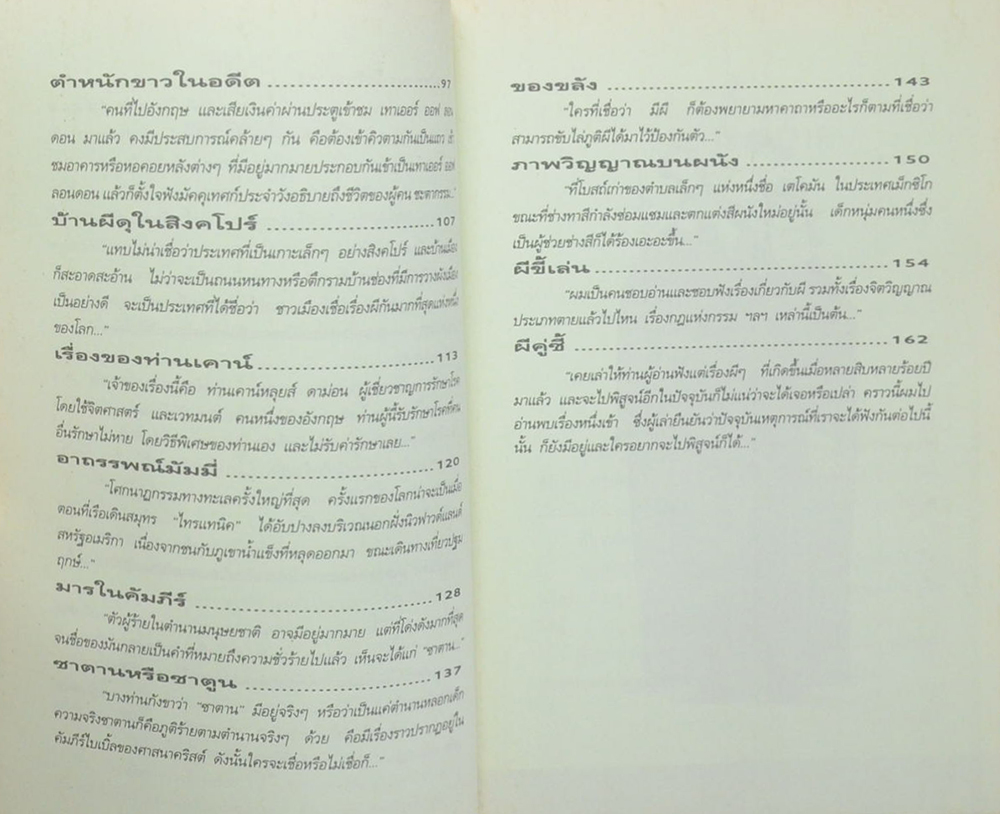 ตำหนักขาวในอดีต ........................................97
"คนที่ไปอังกฤษ และเสียเงินค่าผ่านประตูเข้าชม เทาเออร์ ออฟ ลอน
ดอน มาแล้ว คงมีประสบการณ์คล้ายๆ กัน คือต้องเข้าคิวตามกันเป็นแถว
ชมอาคารหรือหอคอยหลังต่างๆ ที่มีอยู่มากมายประกอบกันเข้าเป็นเทาเออร์ ออฟ
ลอนดอน แล้วก็ตั้งใจฟังมัคคุเทศก์ประจำวังอธิบายถึงชีวิตของผู้คน ชะตากรรม..."
บ้านผีดุในสิงคโปร์ ........................................107
"แทบไม่น่าเชื่อว่าประเทศที่เป็นเกาะเล็กๆ อย่างสิงคโปร์ และบ้านเมือง
ก็สะอาดสะอ้าน ไม่ว่าจะเป็นถนนหนทางหรือตึกรามบ้านช่องที่มีการวางผังเมือง
เป็นอย่างดี จะเป็นประเทศที่ได้ชื่อว่า ชาวเมืองเชื่อเรื่องผีกันมากที่สุดแห่งหนึ่ง
ของโลก..."
เรื่องของท่านเคาน์ ........................................113
"เจ้าของเรื่องนี้คือ ท่านเคาน์หลุยส์ ดาม่อน ผู้เชี่ยวชาญการรักษาโรค
โดยใช้จิตศาสตร์ และเวทมนต์ คนหนึ่งของอังกฤษ ท่านผู้นี้รับรักษาโรคที่คน
อื่นรักษาไม่หาย โดยวิธีพิเศษของท่านเอง และไม่รับค่ารักษาเลย..."
อาถรรพณ์มัมมี่ ........................................120
"โศกนาฏกรรมทางทะเลครั้งใหญ่ที่สุด ครั้งแรกของโลกน่าจะเป็นเมื่อ
ตอนที่เรือเดินสมุทร "ไทรแทนิค" ได้อับปางลงบริเวณนอกฝั่งนิวฟาวด์แลนด์
สหรัฐอเมริกา เนื่องจากชนกับภูเขาน้ำแข็งที่หลุดออกมา ขณะเดินทางเที่ยวปฐม
ฤกษ์..."
มารในคัมภีร์ ........................................128
"ตัวผู้ร้ายในตำนานมนุษยชาติ อาจมีอยู่มากมาย แต่ที่โด่งดังมากที่สุด
จนชื่อของมันกลายเป็นคำที่หมายถึงความชั่วร้ายไปแล้ว เห็นจะได้แก่ "ซาตาน..."
ซาตานหรือซาตูน ........................................137
"บางท่านกังขาว่า "ซาตาน" มีอยู่จริงๆ หรือว่าเป็นแค่ตำนานหลอกเด็ก
ความจริงซาตานก็คือภูติร้ายตามตำนานจริงๆ ด้วย คือมีเรื่องราวปรากฏอยู่ใน
คัมภีร์ไบเบิ้ลของศาสนาคริสต์ ดังนั้นใครจะเชื่อหรือไม่เชื่อก็..."
ของขลัง ........................................143
"ใครที่เชื่อว่า มีผี ก็ต้องพยายามหาคาถาหรืออะไรก็ตามที่เชื่อว่า
สามารถขับไล่ภูติผีได้มาไว้ป้องกันตัว..."
ภาพวิญญาณบนผนัง ........................................150
"ที่โบสถ์เก่าของตำบลเล็กๆ แห่งหนึ่งชื่อ เตโคมัน ในประเทศเม็กซิโก
ขณะที่ช่างทาสีกำลังซ่อมแซมและตกแต่งสีผนังใหม่อยู่นั้น เด็กหนุ่มคนหนึ่งซึ่ง
เป็นผู้ช่วยช่างสีก็ได้ร้องเอะอะขึ้น..."
ผีขี้เล่น ........................................154
"ผมเป็นคนชอบอ่านและชอบฟังเรื่องเกี่ยวกับผี รวมทั้งเรื่องจิตวิญญาณ
ประเภทตายแล้วไปไหน เรื่องกฎแห่งกรรม ฯลฯ เหล่านี้เป็นต้น..."
ผีคู่ซี้ ........................................162
"เคยเล่าให้ท่านผู้อ่านฟังแต่เรื่องผีๆ ที่เกิดขึ้นเมื่อหลายสิบหลายร้อยปี
มาแล้ว และจะไปพิสูจน์อีกในปัจจุบันก็ไม่แน่ว่าจะได้เจอหรือเปล่า คราวนี้ผมไป
อ่านพบเรื่องหนึ่งเข้า ซึ่งผู้เล่ายืนยันว่าปัจจุบันเหตุการณ์ที่เราจะได้ฟังกันต่อไปนี้
นั้น ก็ยังมีอยู่และใครอยากจะไปพิสูจน์ก็ได้..."